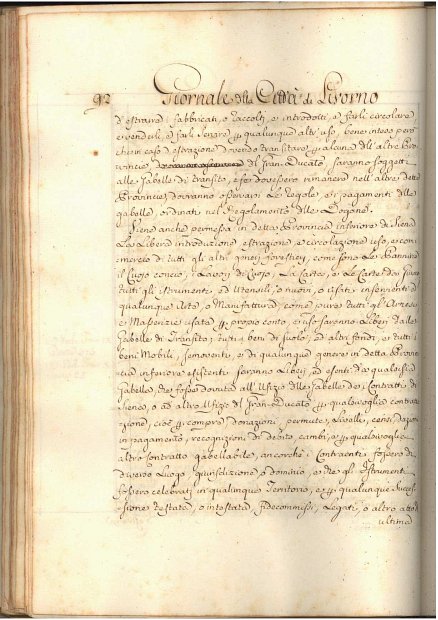 92 Giornale della Città di Livorno
d'estrarre i fabbricati, o raccolti, e introdotti, e farli circolare
e venderli, e farli Senare per qualunque altr'uso, bene inteso però
che in caso d'estrazione dovendo transitare per alcune dell'altre Pro-
vincie, del Gran-Ducato saranno soggetti
alle Gabelle di transito, e se dovessero rimanere nell'altre dette
Provincie, dovranno osservarsi le regole e i pagamenti delle
gabelle, ordinati nel Regolamento delle Dogane.
Sieno anche permessa in detta Provincia inferiore di Siena
la libera introduzione, estrazione, e circolazione, uso, e com-
mercio di tutti gli altri generi forestieri, come sono le
il Cuoio concio, i Lavori di Cuoio, la Carta, e le Carte da
tutti gli Strumenti, ed Utensili, o nuovi, o usati inservienti a
qualunque Arte, o Manifattura, come pure tutti gl'Arnesi
e Masserizie usate per proprio conto, ed uso saranno liberi dalle
Gabelle di Transito, tutti i beni di suolo, ed altri fondi, e tutti i
beni Mobili, Semoventi, e di qualunque genere in detta Provin-
cia inferiore esistenti saranno liberi, ed esenti da qualsisia
Gabella, che fosse dovuta all'Ufizio delle Gabelle dei Contratti di
Siena, o ad altro Ufizio del Gran-Ducato per qualsivoglia contrat-
tazione, cioè per compre, Donazioni, permute, Livelli,
in pagamento, recognizioni di debito, cambi, e per qualsivoglia
altro contratto gabellabile, ancorchè i Contraenti fossero di
diverso Luogo giurisdizione, o dominio, e che gli Strumenti
fossero celebrati in qualunque Territorio, e per qualunque Succes-
sione testata, o intestata, fidecommissi, Legati, o altro atto d'
ultima